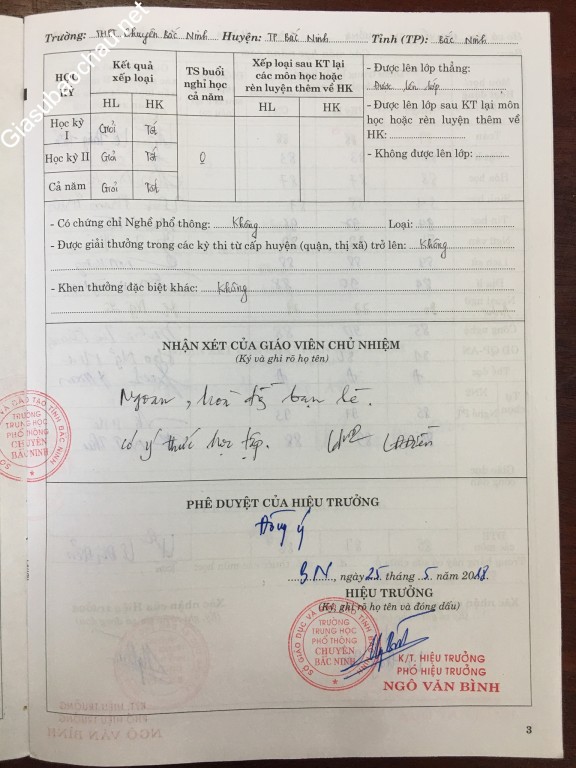 Trường: THPT Chuyên Bắc Ninh Huyện: TP Bắc Ninh Tỉnh (TP): Bắc Ninh
HỌC KỲ
Kết quả xếp loại
TS buổi nghỉ học cả năm
Xếp loại sau KT lại các môn học hoặc rèn luyện thêm về HK
HL HK HL HK
Học kỳ I Giỏi Tốt
Học kỳ II Giỏi Tốt 0
Cả năm Giỏi Tốt
- Được lên lớp thẳng:
Được lên lớp
- Được lên lớp sau KT lại môn
học hoặc rèn luyện thêm về
HK:
- Không được lên lớp:
- Có chứng chỉ Nghề phổ thông: Không Loại:
- Được giải thưởng trong các kỳ thi từ cấp huyện (quận, thị xã) trở lên: Không
- Khen thưởng đặc biệt khác: Không
NHẬN XÉT CỦA GIÁO VIÊN CHỦ NHIỆM
(Ký và ghi rõ họ tên)
Ngoan, hoà đồng bạn bè.
có ý thức học tập.
SỞ GIÁO DỤC VÀ ĐÀO TẠO TỈNH BẮC NINH
TRƯỜNG
TRUNG HỌC
PHỔ THÔNG
CHUYÊN
BẮC NINH
PHÊ DUYỆT CỦA HIỆU TRƯỞNG
Đồng ý
BN, ngày 25 tháng 5 năm 2018
HIỆU TRƯỞNG
(Ký, ghi rõ họ tên và đóng dấu)
SỞ GIÁO DỤC VÀ ĐÀO TẠO TỈNH BẮC NINH
TRƯỜNG
TRUNG HỌC
PHỔ THÔNG
CHUYÊN
BẮC NINH
K/T. HIỆU TRƯỞNG
PHÓ HIỆU TRƯỞNG
NGÔ VĂN BÌNH
3
Giasubaochau.net